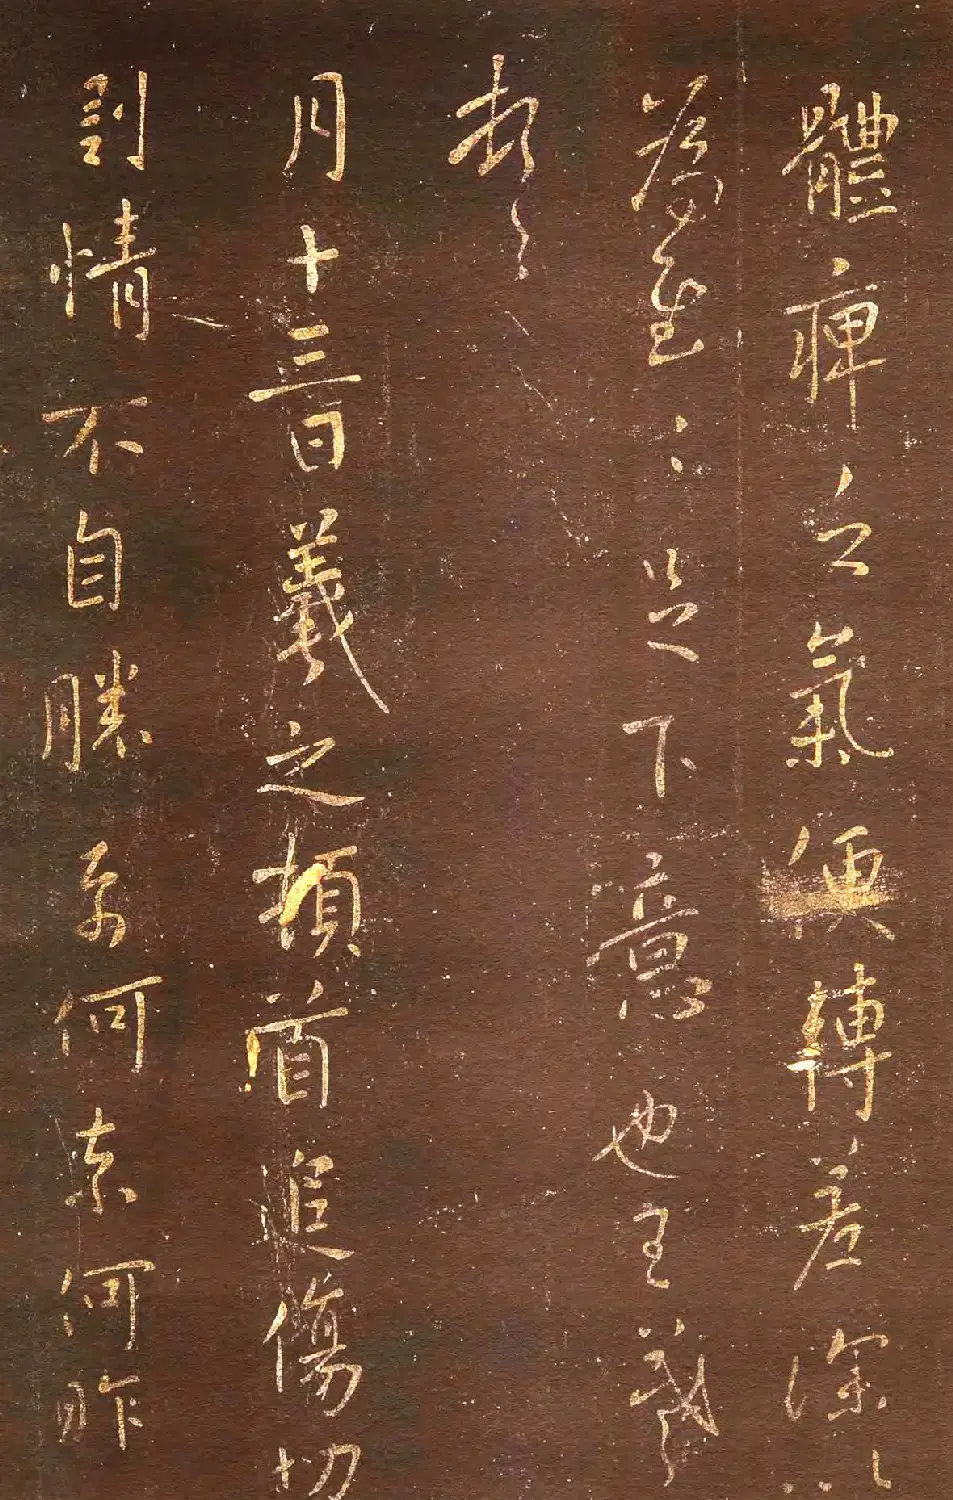 體痺乏氣便轉差深以
為慰〻足下意也王羲之
頓首
月十三日羲之頓首追傷切
割情不自勝奈何奈何昨